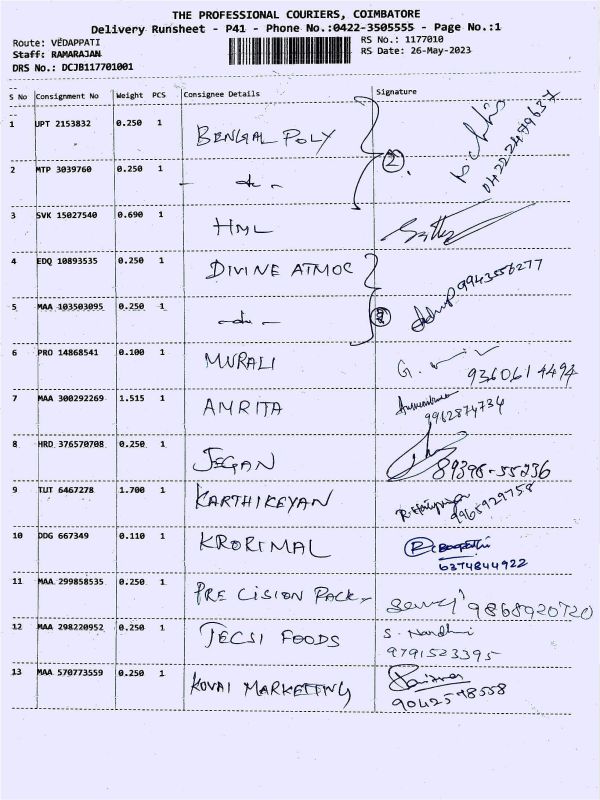 THE PROFESSIONAL COURIERS, COIMBATORE
Delivery Runsheet - P41 - Phone No.:0422-3505555 - Page No.:1
Route: VEDAPPATI RS No.: 1177010
Staff: RAMARAJAN RS Date: 26-May-2023
DRS No.: DCJB117701001
S No Consignment No Weight PCS Consignee Details Signature
1 UPT 2153832 0.250 1 BENGAL POLY
2 MTP 3039760 0.250 1 - do - 2
3 SVK 15027540 0.690 1 HML
4 EDQ 10893535 0.250 1 DIVINE ATMOC 9943556277
5 MAA 103503095 0.250 1 - do -
6 PRO 14868541 0.100 1 MURALI G. 9360614494
7 MAA 300292269 1.515 1 AMRITA
9962874734
8 HRD 376570708 0.250 1 JEGAN 89398-55236
9 TUT 6467278 1.700 1 KARTHIKEYAN 9965929758
10 DDG 667349 0.110 1 KRORIMAL
6374844922
11 MAA 299858535 0.250 1 PRE CISION PACK 9868920720
12 MAA 298220952 0.250 1 TECSI FOODS S. Nandhi
9791523395
13 MAA 570773559 0.250 1 KOVAI MARKETTING
9042598558